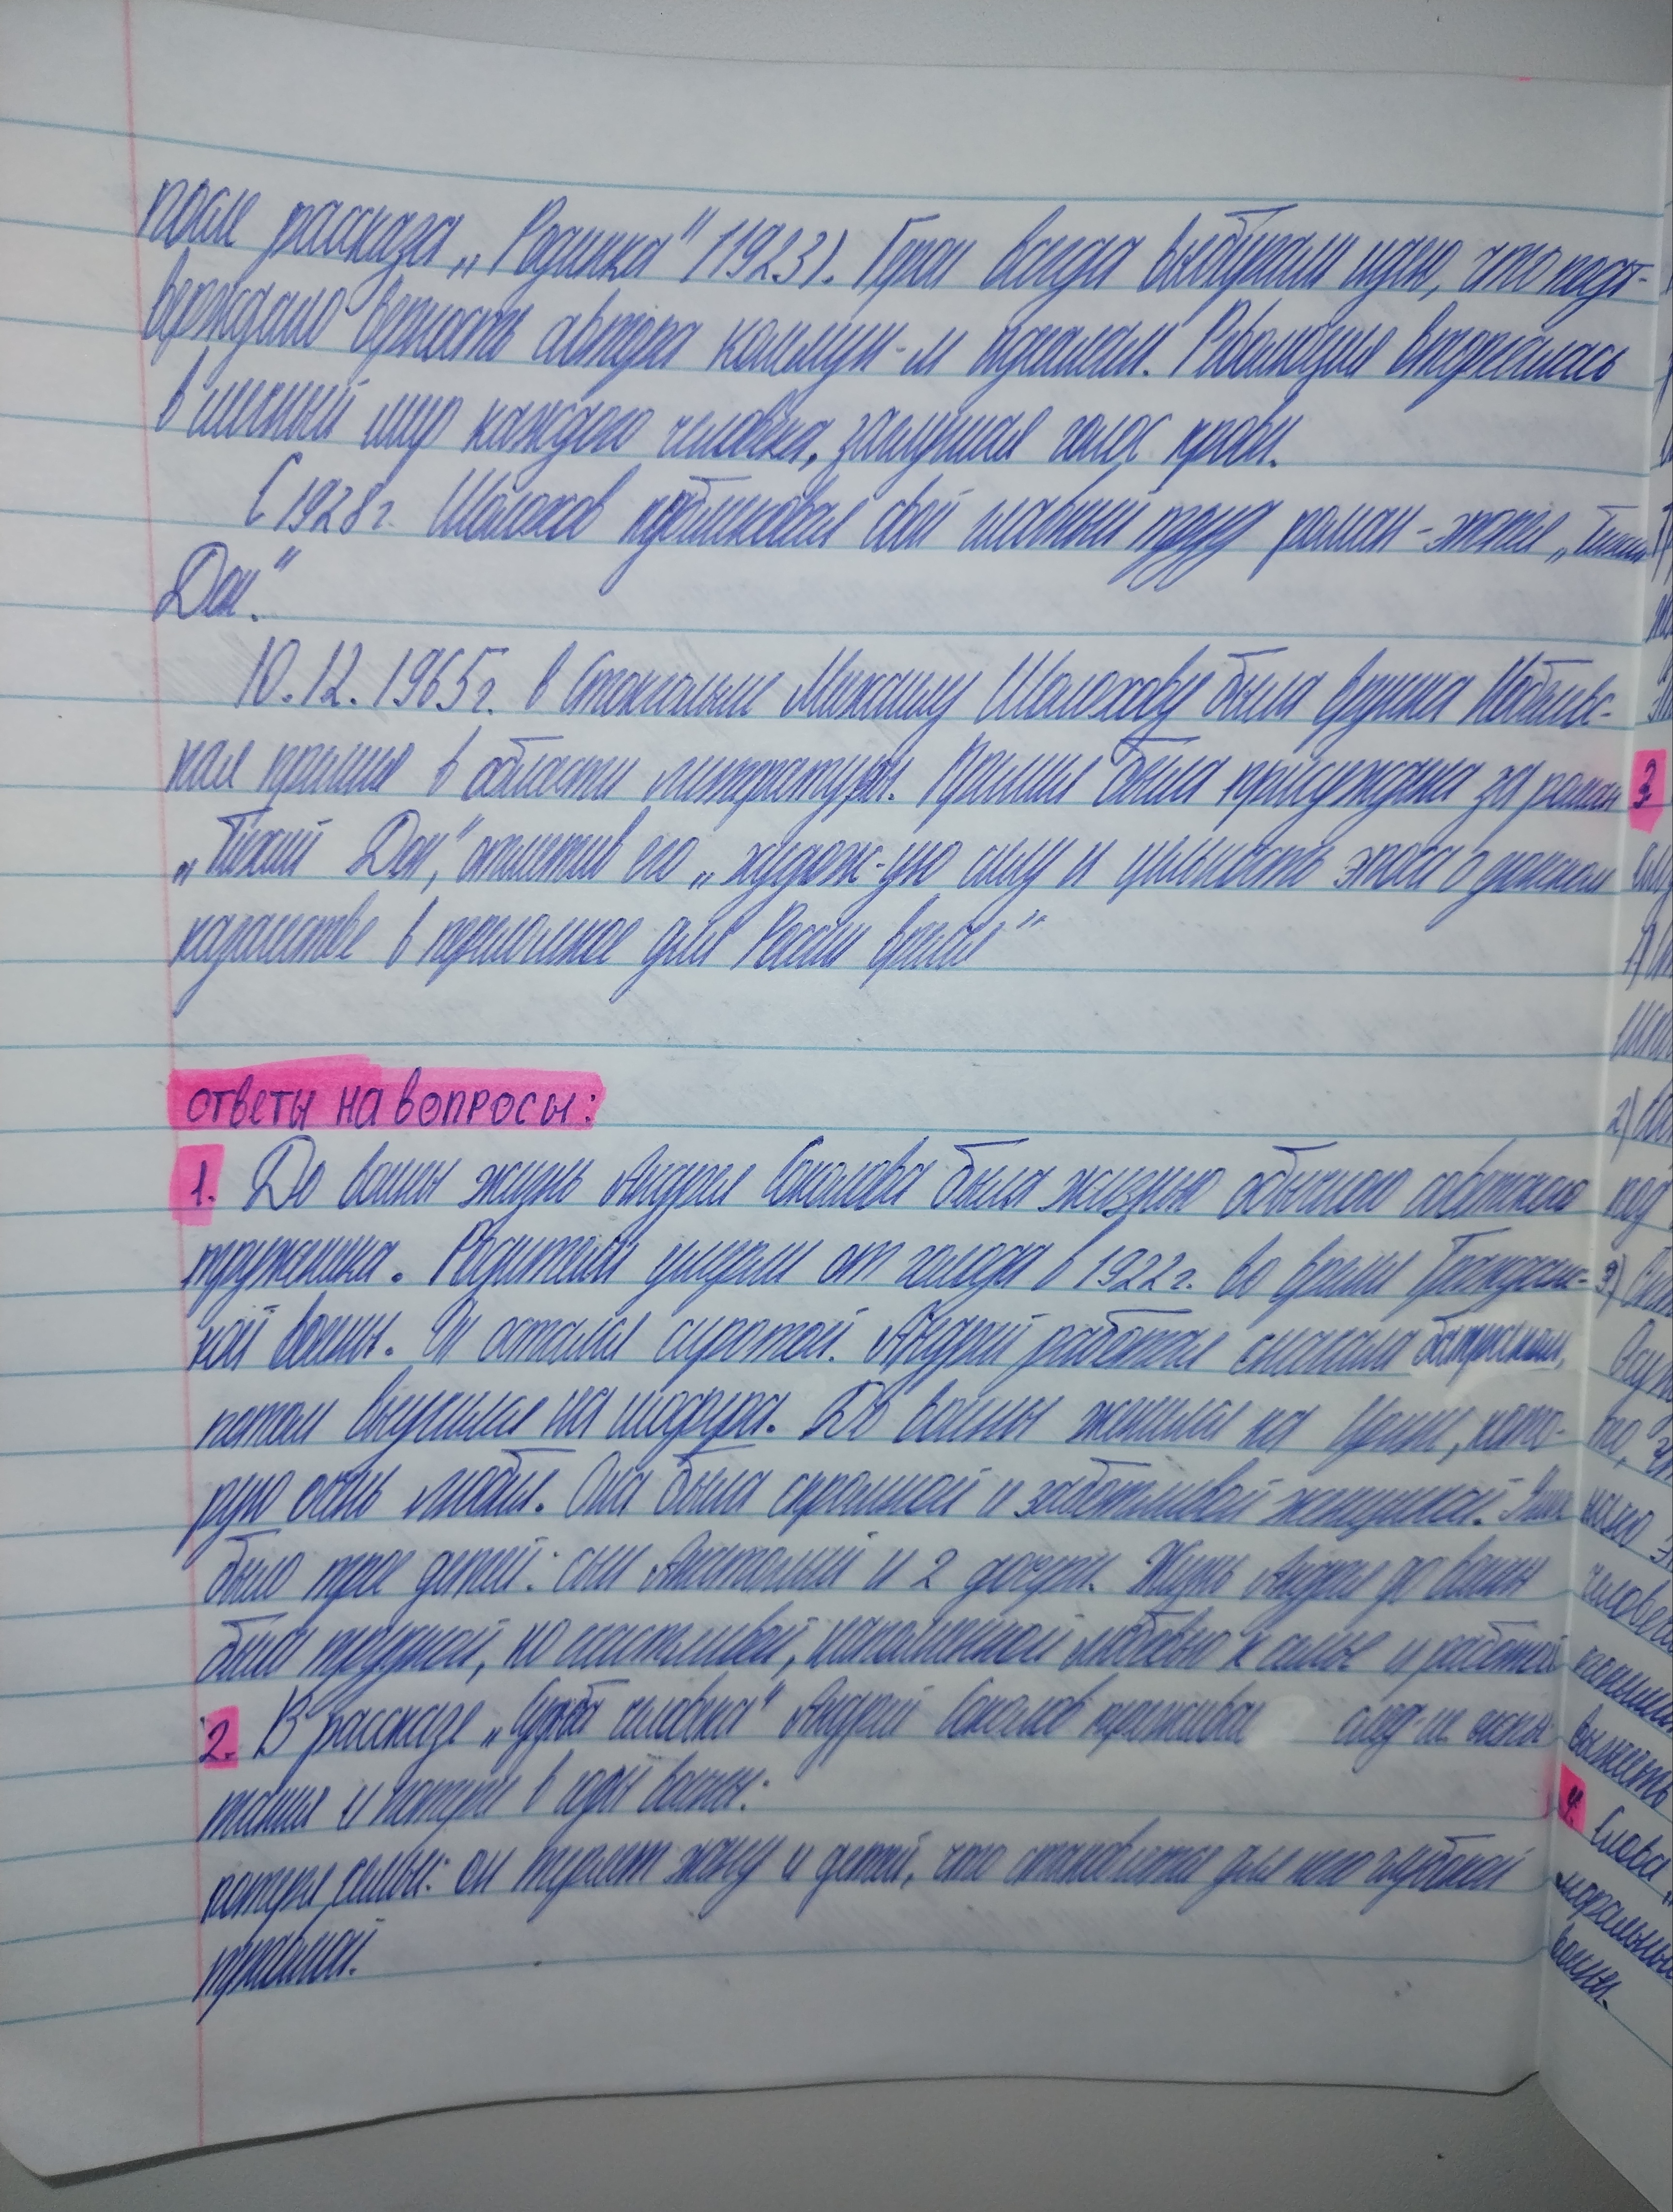 после рассказа „Родинка" (1923). Герои всегда выбирали идею, что подт-
верждало верность автора коммун-м идеалам. Революция вторгалась
в личный мир каждого человека, заглушая голос крови.
С 1928 г. Шолохов публиковал свой главный труд роман-эпопея „Тихий
Дон."
10.12.1965 г. в Стокгольме Михаилу Шолохову была вручена Нобелевс-
кая премия в области литературы. Премия была присуждена за роман
„Тихий Дон", отметив его „худож-ую силу и цельность эпоса о донском
казачестве в переломное для России время"
ответы на вопросы:
1. До войны жизнь Андрея Соколова была жизнью обычного советского
труженика. Родители умерли от голода в 1922 г. во время Граждан-
кой войны. Он остался сиротой. Андрей работал сначала
потом выучился на шофера. До войны женился на Ирине, кото-
рую очень любил. Она была скромной и заботливой женщиной. У них
было трое детей: сын Анатолий и 2 дочери. Жизнь Андрея до войны
была трудной, но счастливой, наполненной любовью к семье и работой
2. В рассказе „Судьба человека" Андрей Соколов пережива след-ие испы-
тания и потери в годы войны:
потеря семьи: он теряет жену и детей, что становится для него глубокой
травмой.
3.
1)
2)
под
3)
4. Слова
моральны
войны.